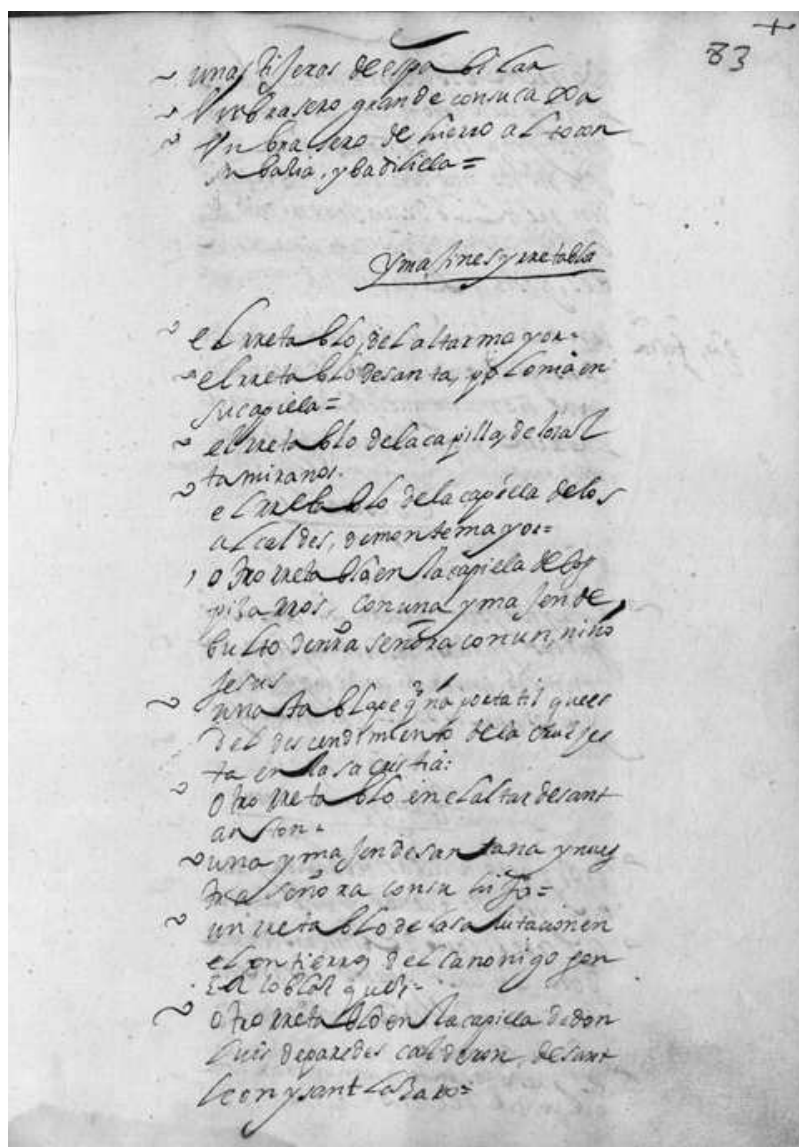 83
unas tijeras de espabilar
Un brasero grande con su caxa
Un brasero de hierro alto con
su basia, y badilella =
Ymajines y rretablos
el rretablo, del altar mayor =
el rretablo de santa, polonia en
su capiela =
el rretablo de la capilla, de los al
tamiranos.
el rretablo de la capiella de los
alcaldes, de montemayor =
otro rretablo en la capiela de los
pizarros, con una ymajen de
bulto de nra señora con un, niño
Jesus
una tabla peqna portatil que es
del descendimiento de la cruz, es
ta en la sacristia:
otro rretablo en el altar de sant
anton =
una ymajen de santana y nues
tra señora con su hijo =
un rretablo de la salutacion en
el entierro, del canonigo gon
blasques =
otro rretablo en la capiella de don
luis de paredes calderon, de sant
leon y sant lazaro =